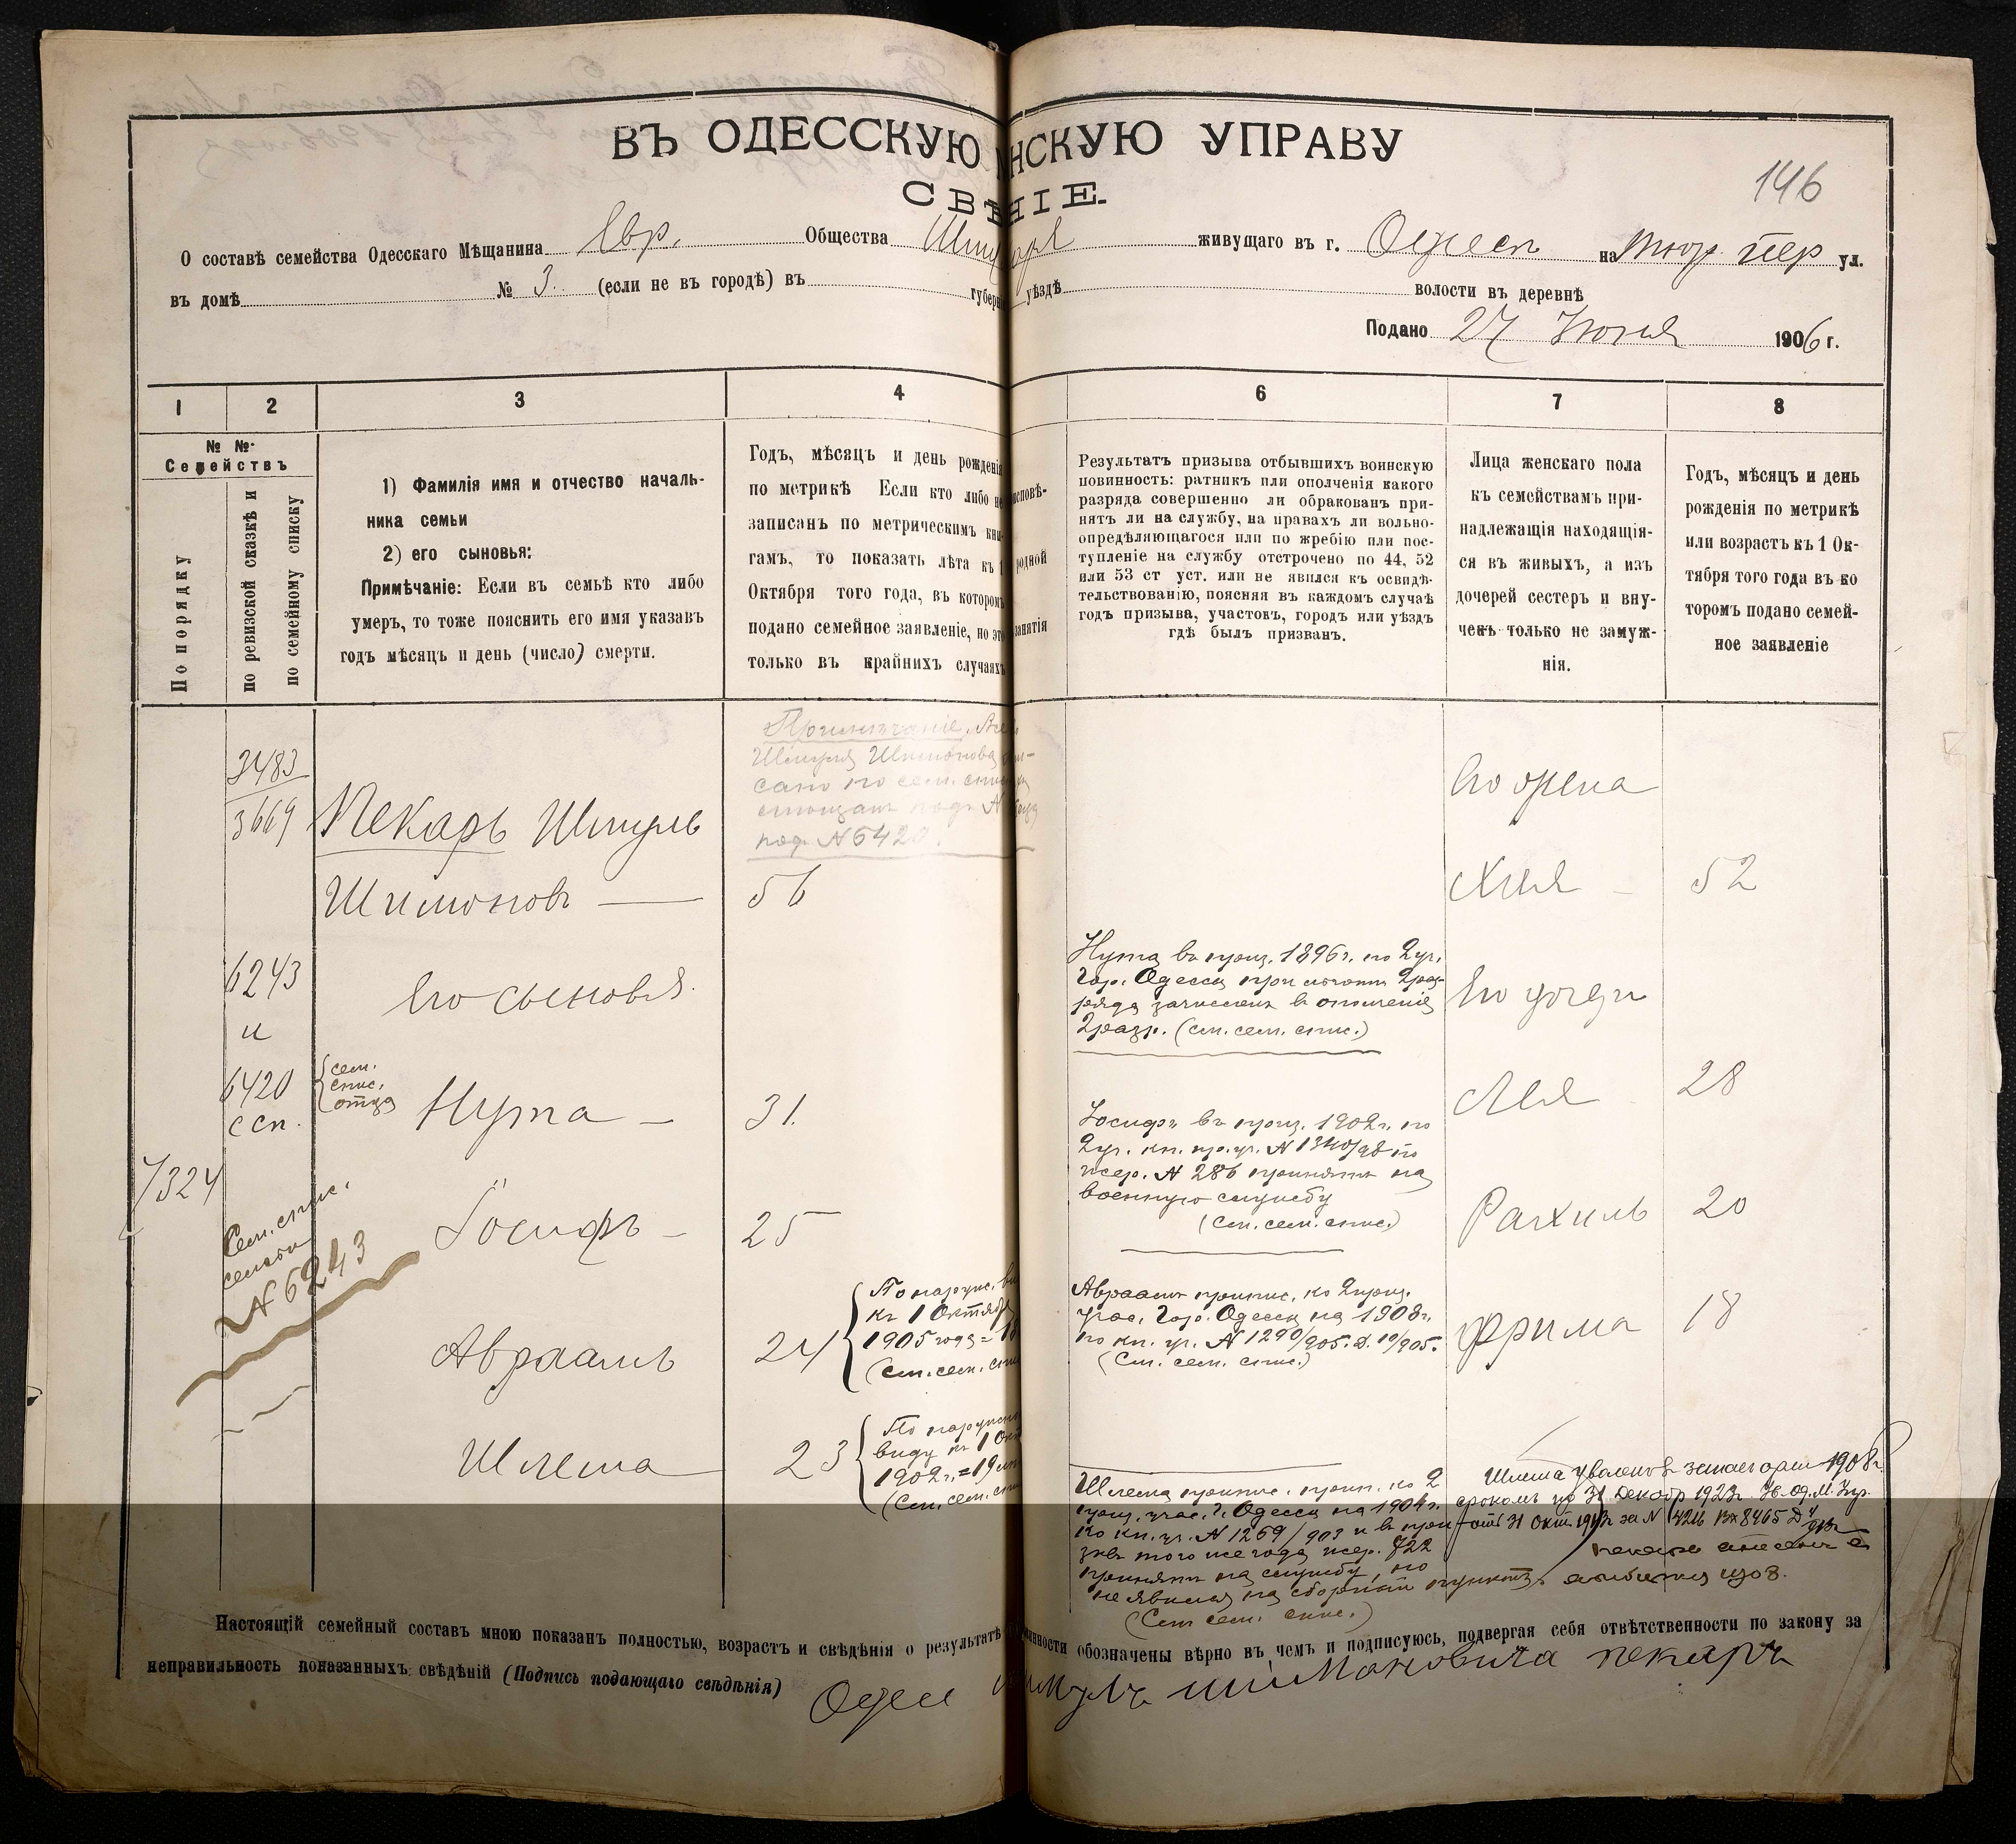 ВЪ ОДЕССКУЮ НСКУЮ УПРАВУ
146
СВѢ НІЕ.
О составѣ семейства Одесскаго Мѣщанина Евр. Общества живущаго въ г. Одессѣ на пер ул.
въ домѣ № 3. (если не въ городѣ) въ губерн уѣздѣ волости въ деревнѣ
Подано 27 Іюня 1906 г.
1 2 3 4 6 7 8
№ №
Семействъ
По порядку
по ревизской сказкѣ и
по семейному списку
1) Фамилія имя и отчество началь-
ника семьи
2) его сыновья:
Примѣчаніе: Если въ семьѣ кто либо
умеръ, то тоже пояснить его имя указавъ
годъ мѣсяцъ и день (число) смерти.
Годъ, мѣсяцъ и день рожденія
по метрикѣ Если кто либо не
записанъ по метрическимъ кни-
гамъ, то показать лѣта къ 1
Октября того года, въ которомъ
подано семейное заявленіе, но это
только въ крайнихъ случаяхъ
исповѣ-
родной
занятія
Результатъ призыва отбывшихъ воинскую
повинность: ратникъ или ополченія какого
разряда совершенно ли обракованъ при-
нятъ ли на службу, на правахъ ли вольно-
опредѣляющагося или по жребію или пос-
тупленіе на службу отстрочено по 44, 52
или 53 ст уст. или не явился къ освидѣ-
тельствованію, поясняя въ каждомъ случаѣ
годъ призыва, участокъ, городъ или уѣздъ
гдѣ былъ призванъ.
Лица женскаго пола
къ семействамъ при-
надлежащія находящія-
ся въ живыхъ, а изъ
дочерей сестеръ и вну-
чекъ только не замуж-
нія.
Годъ, мѣсяцъ и день
рожденія по метрикѣ
или возрастъ къ 1 Ок-
тября того года въ ко
торомъ подано семей-
ное заявленіе
Примѣчаніе.
Шмуля Шимонова
сано по сем.
под. № 6420.
3483
3669
Пекарь Шмуль
Шимоновъ — 56
Его жена
Хая — 52
6243
и
6420
ссп.
Его сыновья
сем.
спис.
отца
Нута — 31.
Нута въ приз. 1896г. по 2 уч.
Гор. Одессы
зачисленъ в ополченіе
2 разр. (см. сем. спис.)
Его дочери
Лея 28
7324
Сем. спис.
семьи
№ 6243
Іосифъ — 25
Іосифъ въ приз. 1902г. по
2 уч. кн. пр. уч. № 1340/98 по
жер. № 286 принятъ на
военную службу
(См. сем. спис.)
Рахиль 20
Авраамъ 24
По наружн. в
къ 1 Октября
1905 года =
(См. сем. спис
Авраамъ припис. ко 2 приз.
учас. Гор. Одессы на 1908г.
по кн. уч. № 1290/905. Д. 19/905.
(См. сем. спис.)
Фрима 18
Шлема 23
По наружн
виду къ 1 Окт
1902г. = 19 л
(См. сем. спи
Шлема припис. ко 2
приз. учас. г. Одессы на 1904г.
по кн. уч. № 1269/903 и въ при-
зывъ того же года жер. 722
принятъ на службу, но
не явился на сборный пунктъ.
(См сем. спис.)
Шлема уволенъ в запас арміи 1908г.
срокомъ по 31 Декабр 1923г.
отъ 31 Окт. 1913г за №
Настоящій семейный составъ мною показанъ полностью, возрастъ и свѣдѣнія о результатѣ инности обозначены вѣрно въ чемъ и подписуюсь, подвергая себя отвѣтственности по закону за
неправильность показанныхъ свѣдѣній (Подпись подающаго свѣдѣнія) Одесс Шмуль Шимоновича Пекаръ